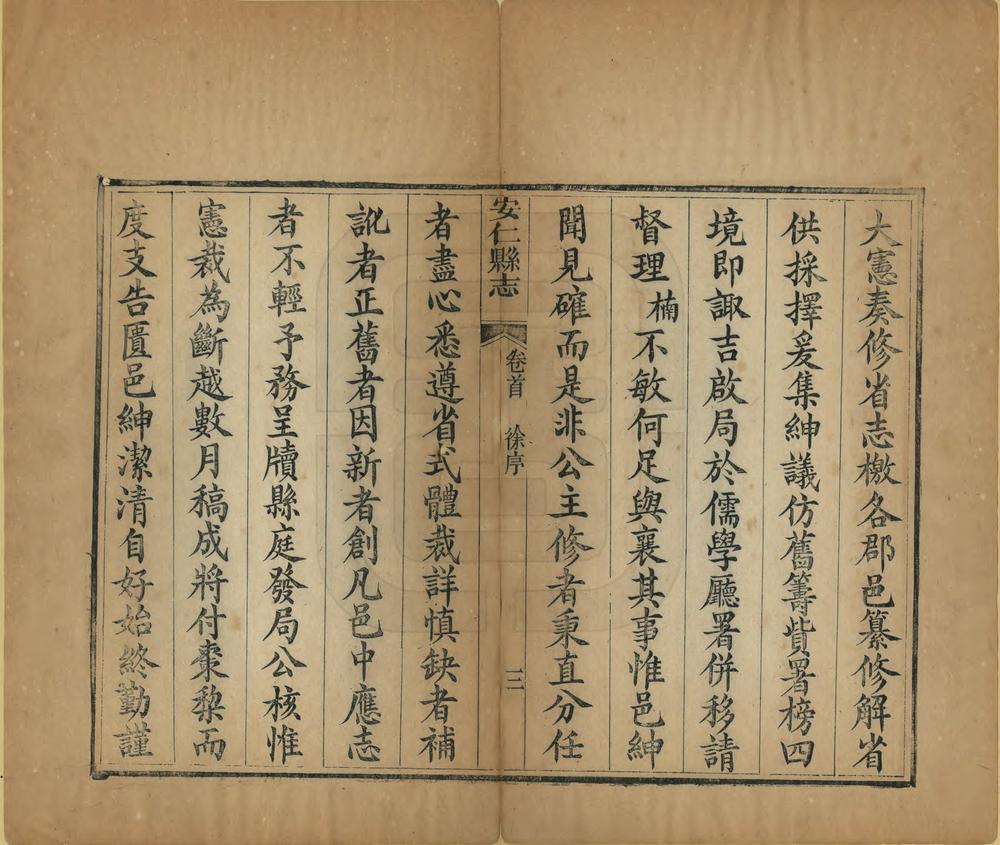 大憲奏修省志檄各郡邑纂修解省
供採擇爰集紳議仿舊籌貲署榜四
境即諏吉啟局於儒學廳署併移請
督理楠不敏何足與襄其事惟邑紳
聞見確而是非公主修者秉直分任
安仁縣志 卷首 徐序 三
者盡心悉遵省式體裁詳慎缺者補
訛者正舊者因新者創凡邑中應志
者不輕予務呈牘縣庭發局公核惟
憲裁為斷越數月稿成將付棗棃而
度支告匱邑紳潔清自好始終勤謹